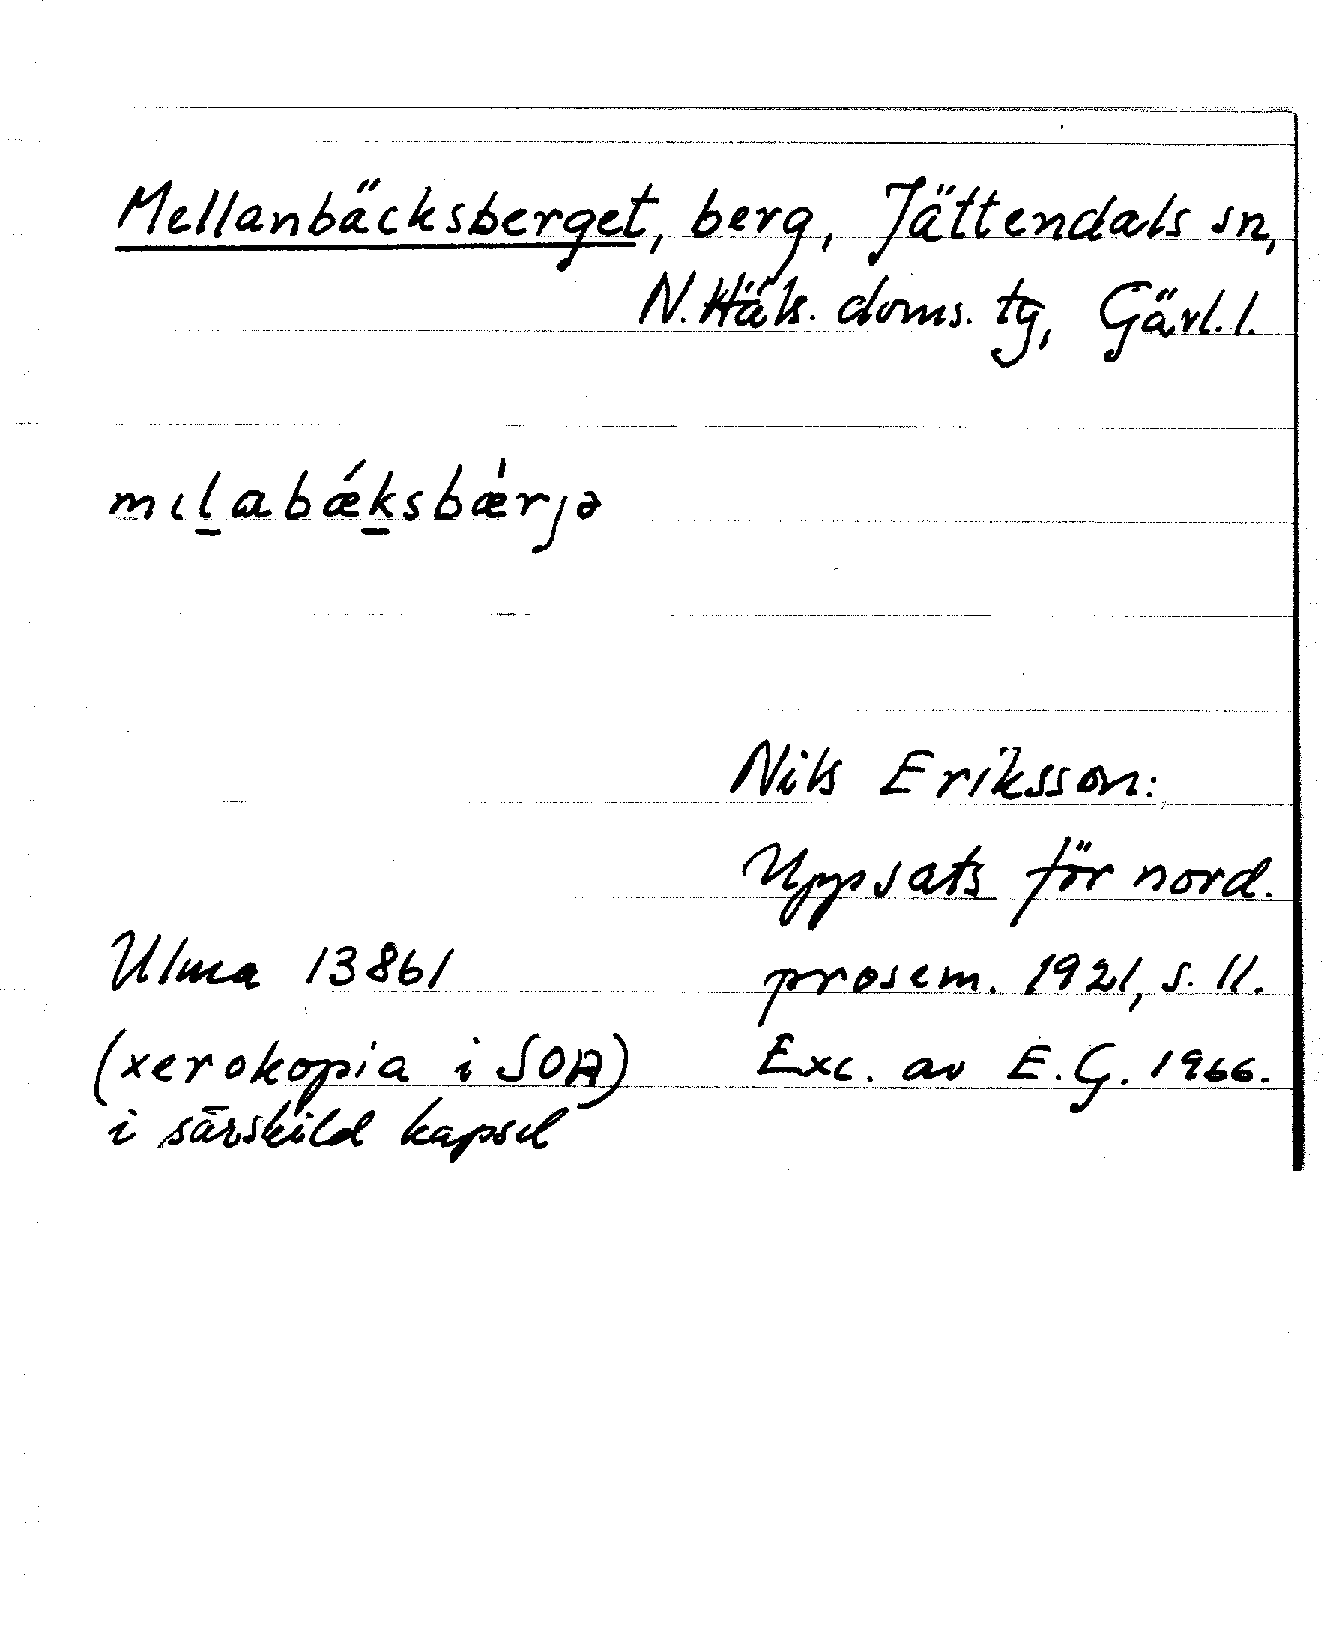 Mellanbäcksberget, berg, Jättendals sn,
N. Häls. doms. tg, Gävl. l.
mıl̲abǽk̲sbæ̍rjə
Nils Eriksson:
Uppsats för nord.
Ulma 13861 prosem. 1921, s. 11.
(xerokopia i SOA) Exc. av E.G. 1966.
i särskild kapsel